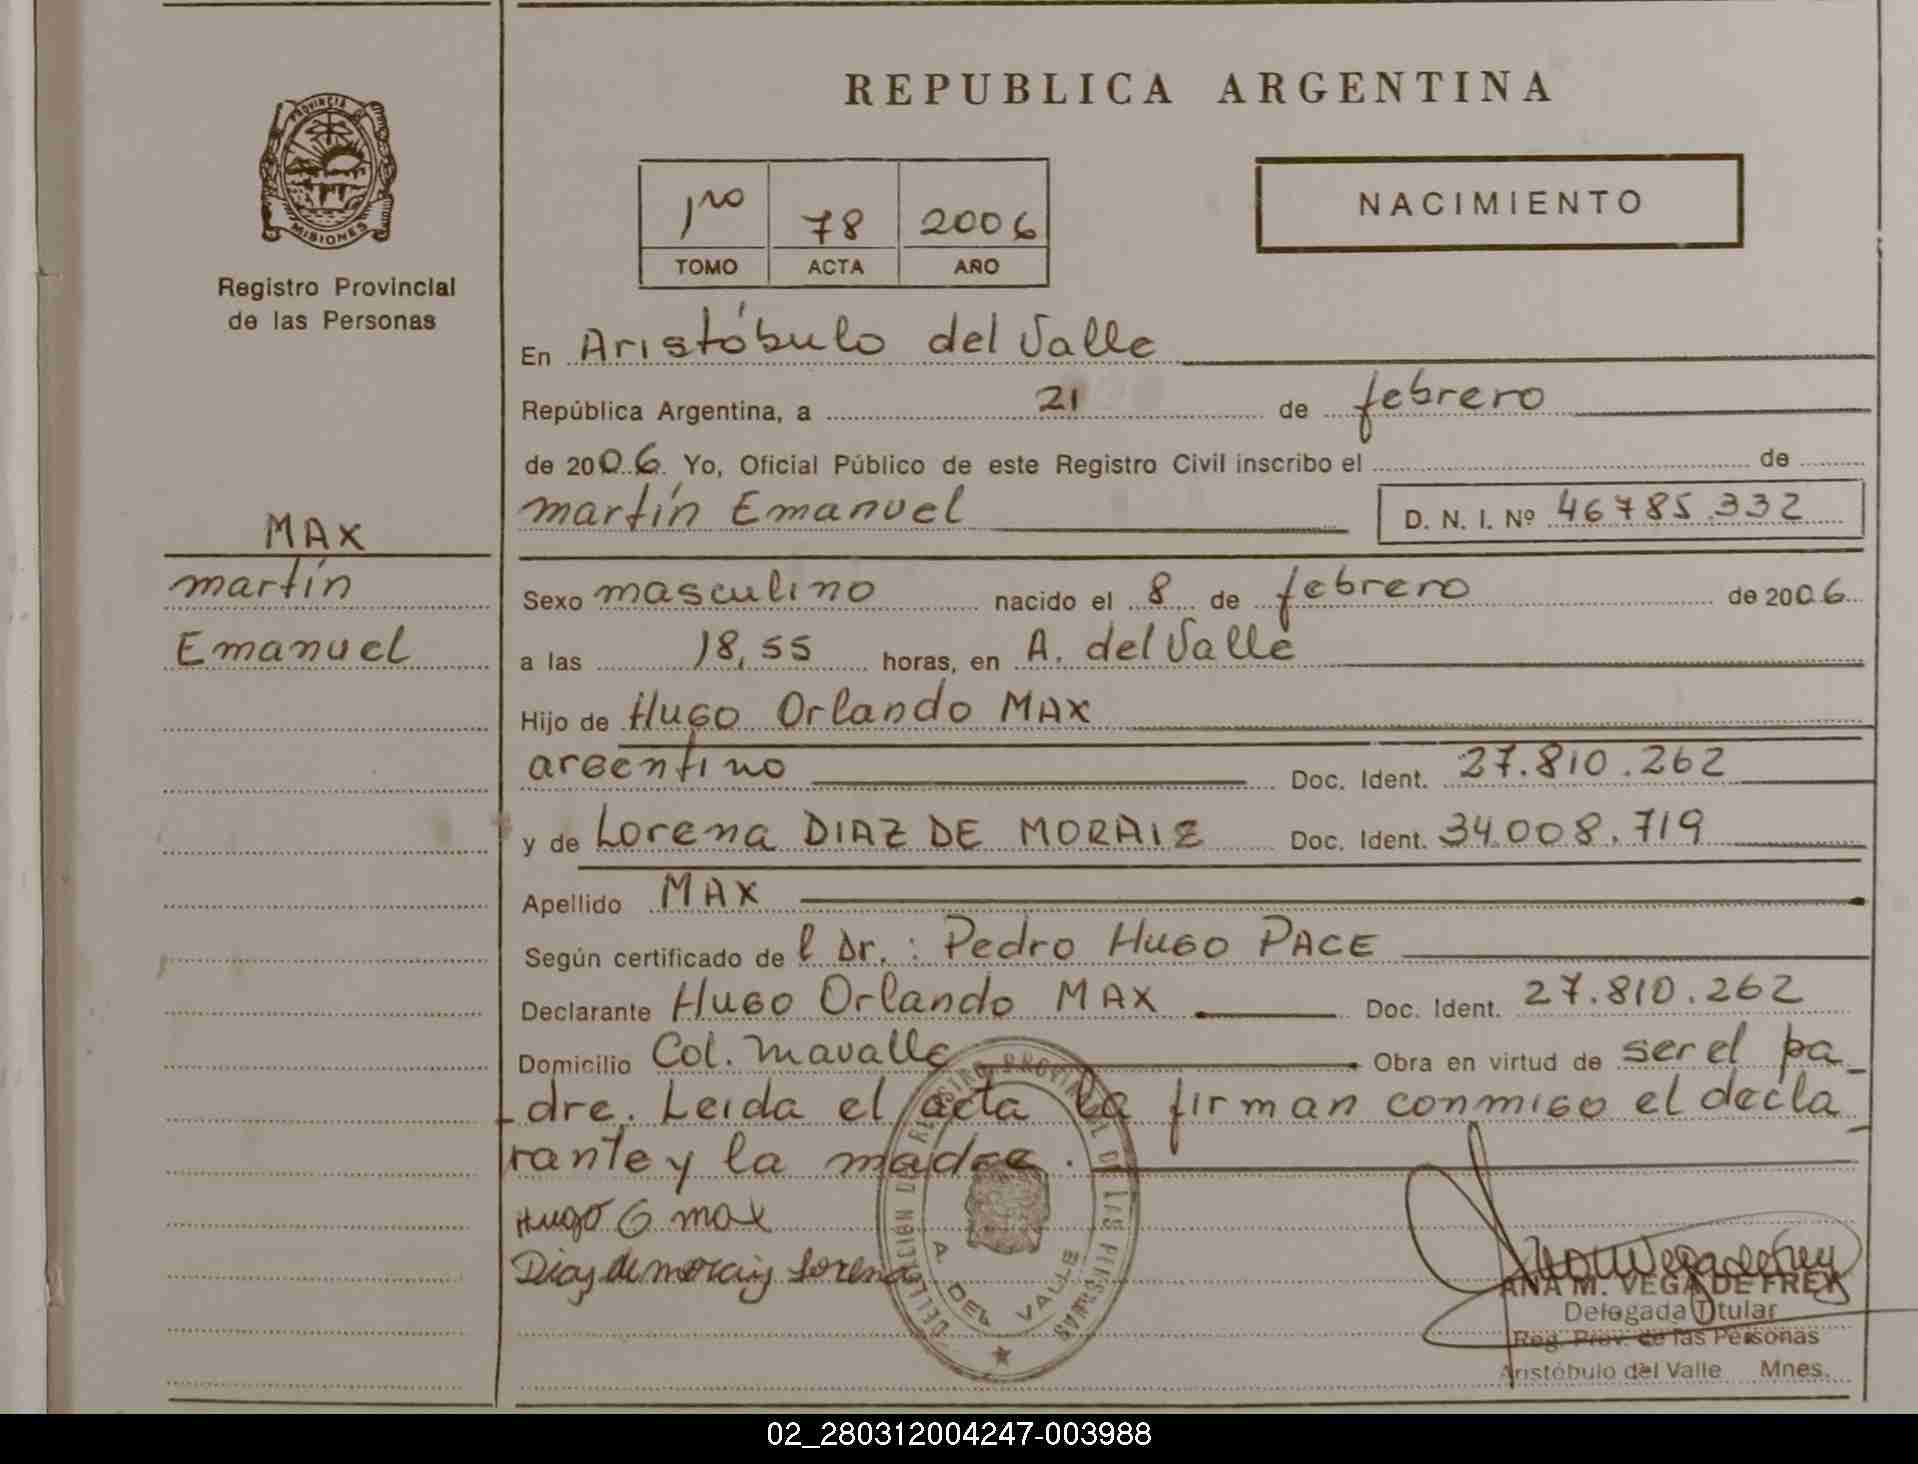 REPUBLICA ARGENTINA
PROVINCIA
MISIONES
Registro Provincial
de las Personas
1ro 78 2006
TOMO ACTA AÑO
NACIMIENTO
En Aristóbulo del Valle
República Argentina, a 21 de febrero
de 2006. Yo, Oficial Público de este Registro Civil inscribo el de
martín Emanuel D. N. I. Nº 46785.332
MAX
martín
Emanuel
Sexo masculino nacido el 8 de febrero de 2006
a las 18,55 horas, en A. del Valle
Hijo de Hugo Orlando MAX
argentino Doc. Ident. 27.810.262
y de Lorena DIAZ DE MORAIZ Doc. Ident. 34.008.719
Apellido MAX
Según certificado de l Dr.: Pedro Hugo PACE
Declarante Hugo Orlando MAX Doc. Ident. 27.810.262
Domicilio Col. mavalle Obra en virtud de ser el pa_
_dre. Leida el acta la firman conmigo el decla_
rante y la madre.
Hugo O max
Diaz de moraiz Lorena
DELEGACION DE REGISTRO PROVINCIAL DE LAS PERSONAS
A. DEL VALLE
ANA M. VEGA DE FREY
Delegada Titular
Reg. Prov. de las Personas
Aristóbulo del Valle Mnes.
02_280312004247-003988